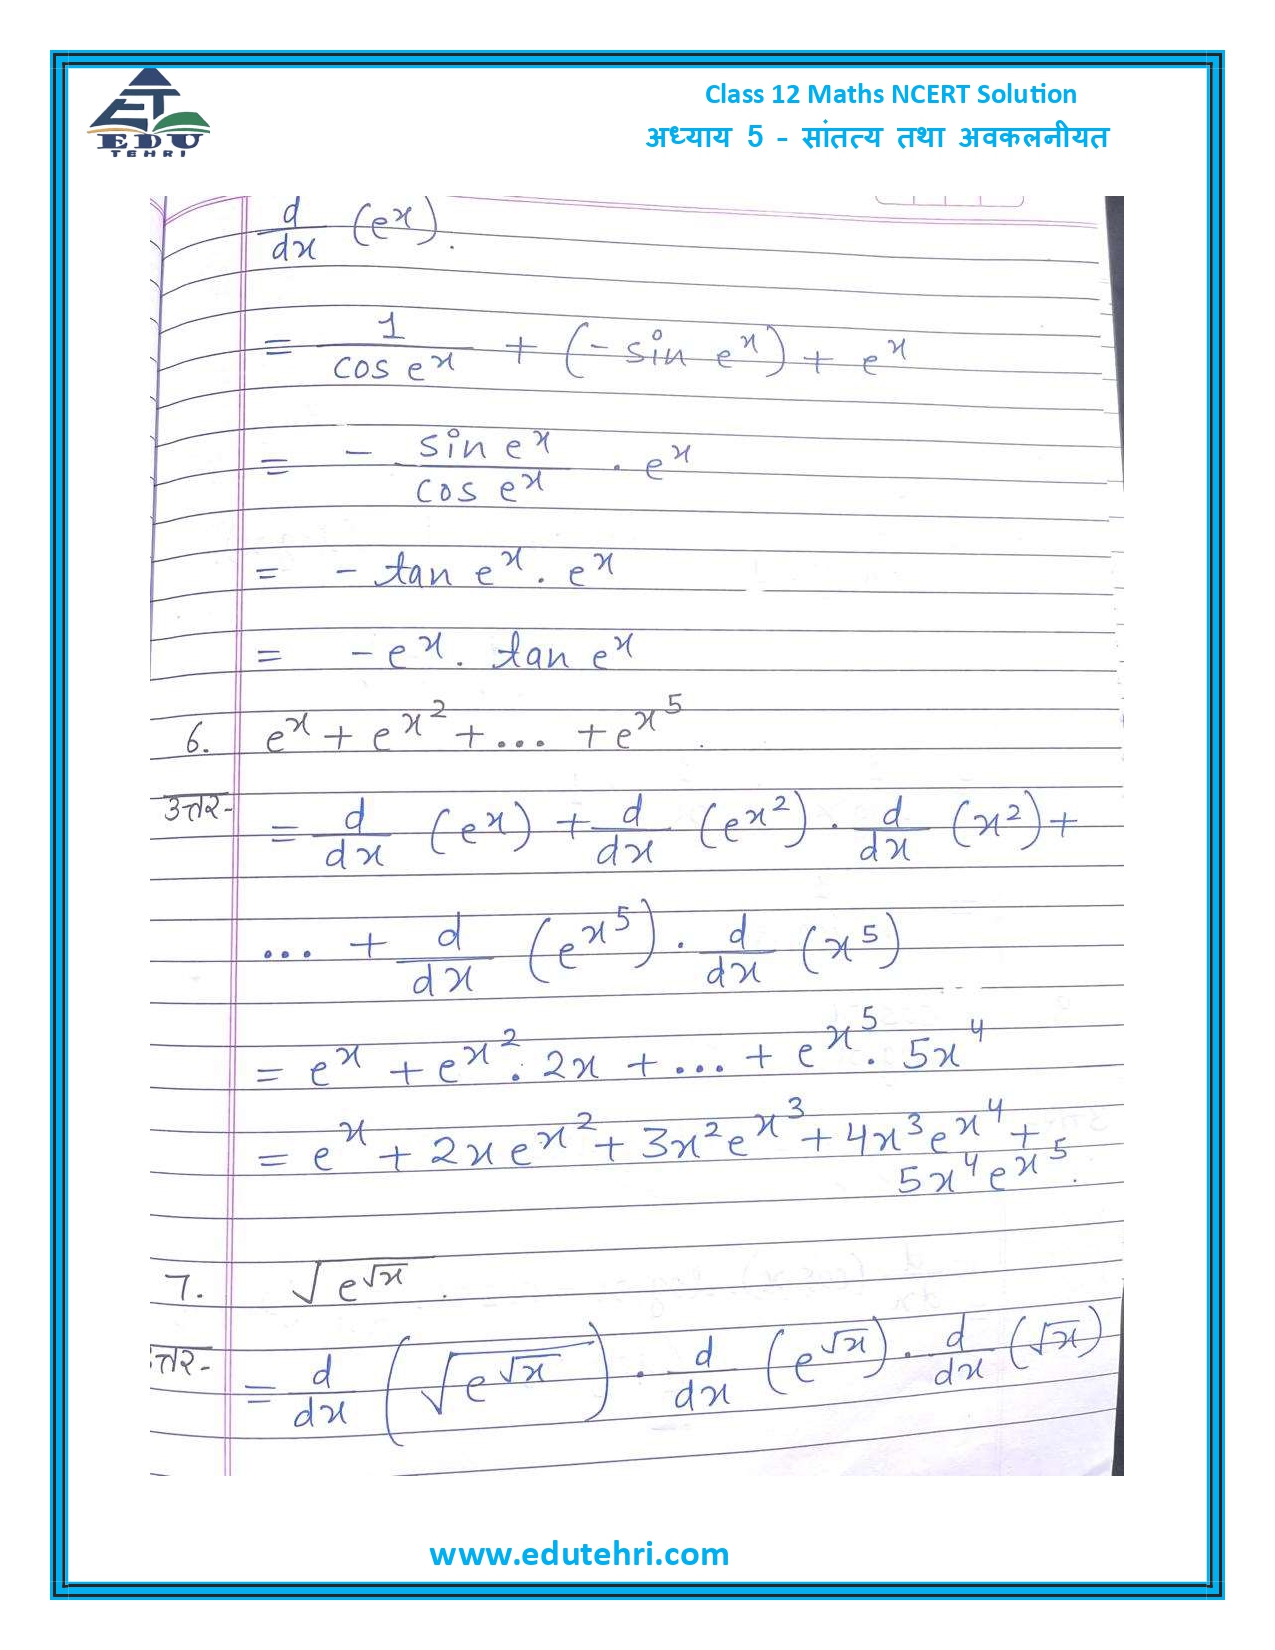 EDU
TEHRI
Class 12 Maths NCERT Solution
अध्याय 5 - सांतत्य तथा अवकलनीयत
d/dx (e^x).
= 1/cos e^x + (- sin e^x) + e^x
= - sin e^x/cos e^x . e^x
= - tan e^x . e^x
= -e^x . tan e^x
6. e^x + e^x^2 + ... + e^x^5.
उत्तर- = d/dx (e^x) + d/dx (e^x^2) . d/dx (x^2) +
... + d/dx (e^x^5) . d/dx (x^5)
= e^x + e^x^2 . 2x + ... + e^x^5 . 5x^4
= e^x + 2x e^x^2 + 3x^2 e^x^3 + 4x^3 e^x^4 +
5x^4 e^x^5.
7. √(e^√x).
त्तर- = d/dx (√(e^√x)) . d/dx (e^√x) . d/dx (√x)
www.edutehri.com